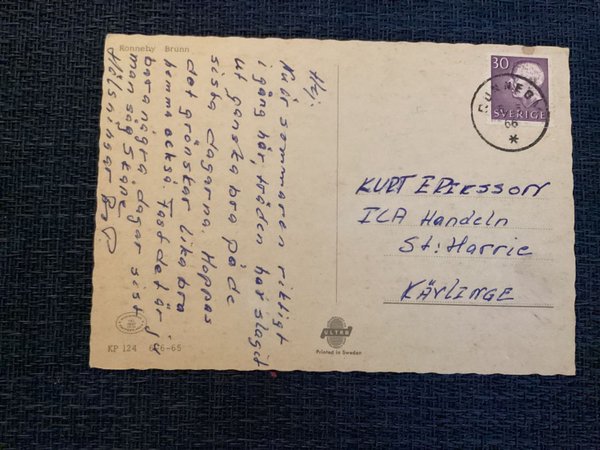 Ronneby Brunn
Hej.
Nu är sommaren riktigt
i gång här träden har slagit
ut ganska bra på de
sista dagarna. Hoppas
det grönskar lika bra
hemma också. Fast det är j
bara några dagar sist
man såg Skåne.
Hälsningar
KP 124
6 6-65
ULTRA
Printed in Sweden
30
SVERIGE
RONNEBY
66
KURT ERIKSSON
ICA Handeln
St: Harrie
KÄVLINGE